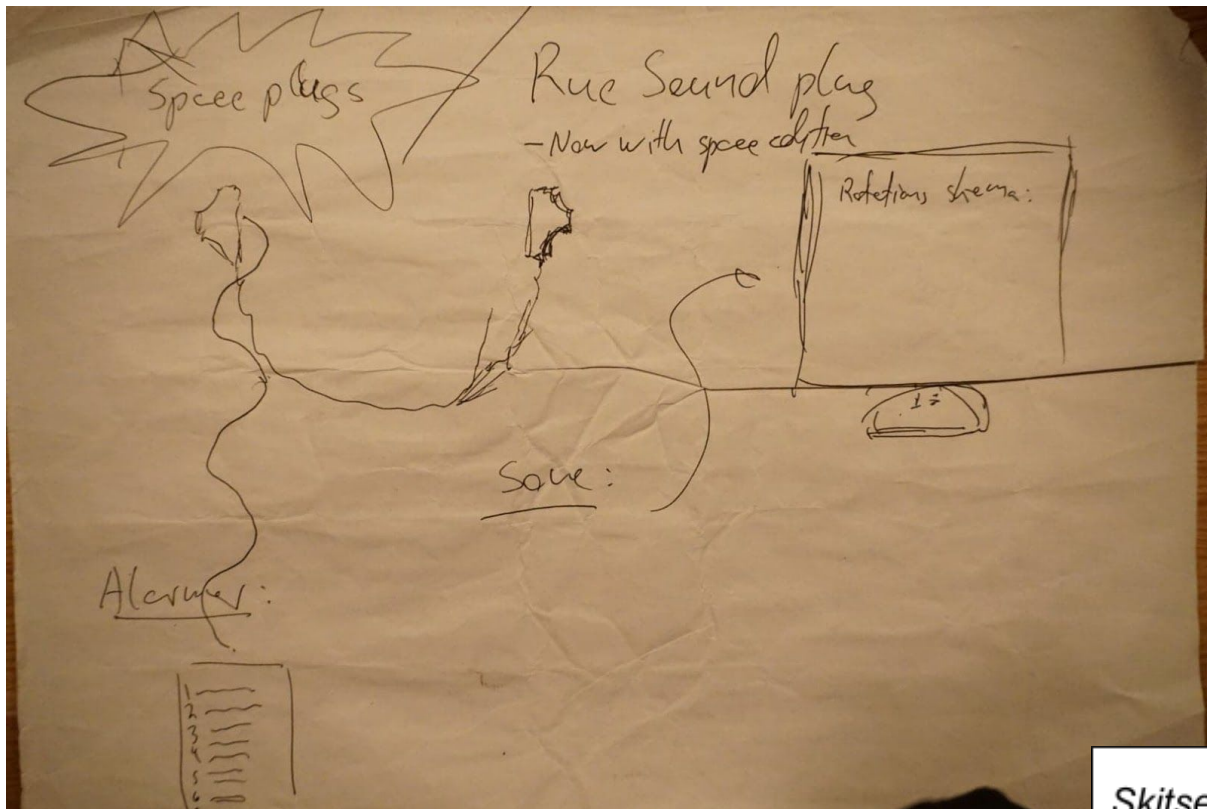 Space plugs
Ruc Sound plug
- Now with space edition
Rotations skema:
1:
Sove:
Alarmer:
1
2
3
4
5
6
Skitse